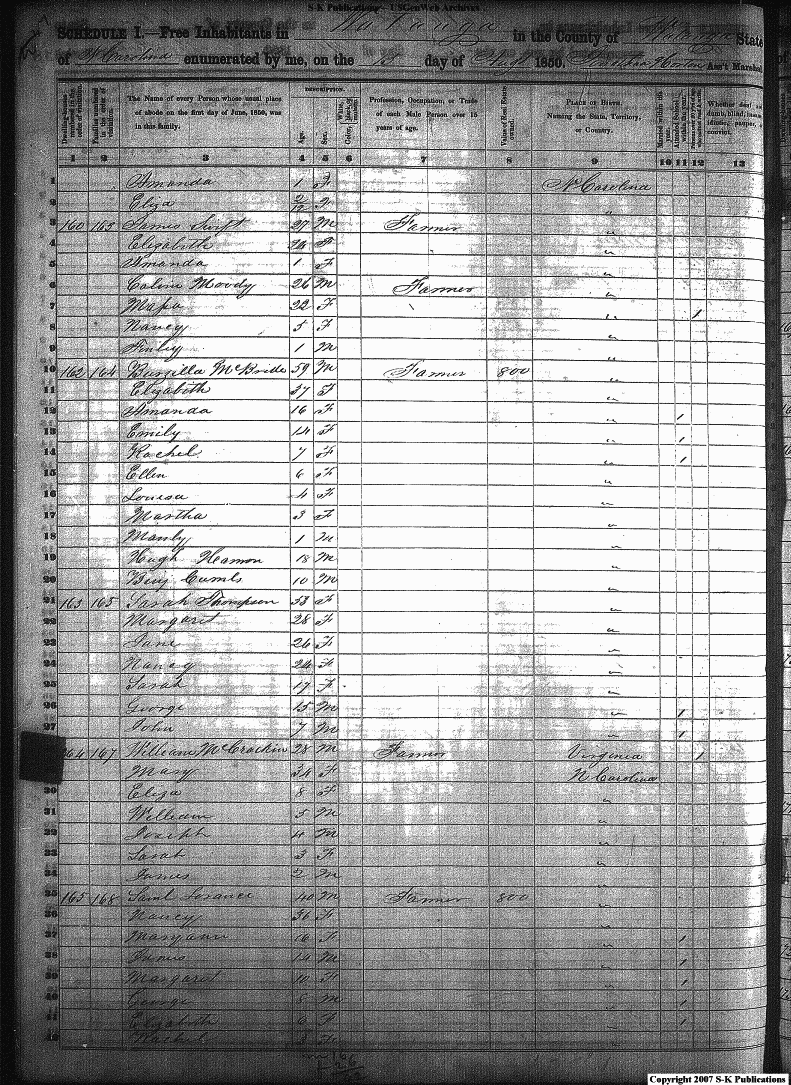 S-K Publications - USGenWeb Archives
SCHEDULE I.—Free Inhabitants in Watauga in the County of Watauga State
of N Carolina enumerated by me, on the 1st day of Augt 1850. Horton Ass't Marshal
DESCRIPTION.
Dwelling-houses numbered in the order of visitation.
Families numbered in the order of visitation.
The Name of every Person whose usual place of abode on the first day of June, 1850, was in this family.
Age.
Sex.
Profession, Occupation, or Trade of each Male Person over 15 years of age.
Value of Real Estate owned.
PLACE OF BIRTH. Naming the State, Territory, or Country.
Whether deaf
1 2 3 4 5 6 7 8 9 10 11 12 13
1 Amanda 1 F N Carolina
2 Eliza 2/12 F "
3 160 163 James Swift 27 M Farmer "
4 Elizabeth F "
5 Amanda 1 F "
6 Calvin Moody 26 M Farmer "
7 22 F " 1
8 Nancy 5 F "
9 Finley 1 M "
10 162 164 McBride 59 M Farmer 800 "
11 Elizabeth 37 F "
12 Amanda 16 F " 1
13 Emily 14 F " 1
14 Rachel 7 F " 1
15 Ellen 6 F "
16 Louisa 4 F "
17 Martha 3 F "
18 Manly 1 M "
19 Hugh Heamon 18 M "
20 Benj Cumls 10 M "
21 163 165 Sarah Thompson 53 F "
22 Margaret 28 F "
23 Jane 26 F "
24 Nancy 24 F "
25 Sarah 17 F "
26 George 15 M " 1
27 John 7 M " 1
164 167 William McCrackin 28 M Farmer Virginia 1
Mary 34 F N Carolina
30 Eliza 8 F "
31 William 5 M "
32 Joseph 4 M "
33 Sarah 3 F "
34 James 2 M "
35 165 168 Saml 40 M Farmer 800 "
36 Nancy 36 F "
37 Maryann 16 F " 1
38 James 14 M " 1
39 Margaret 10 F " 1
40 George 8 M " 1
41 Elizabeth 6 F " 1
42 Rachel F "
Copyright 2007 S-K Publications